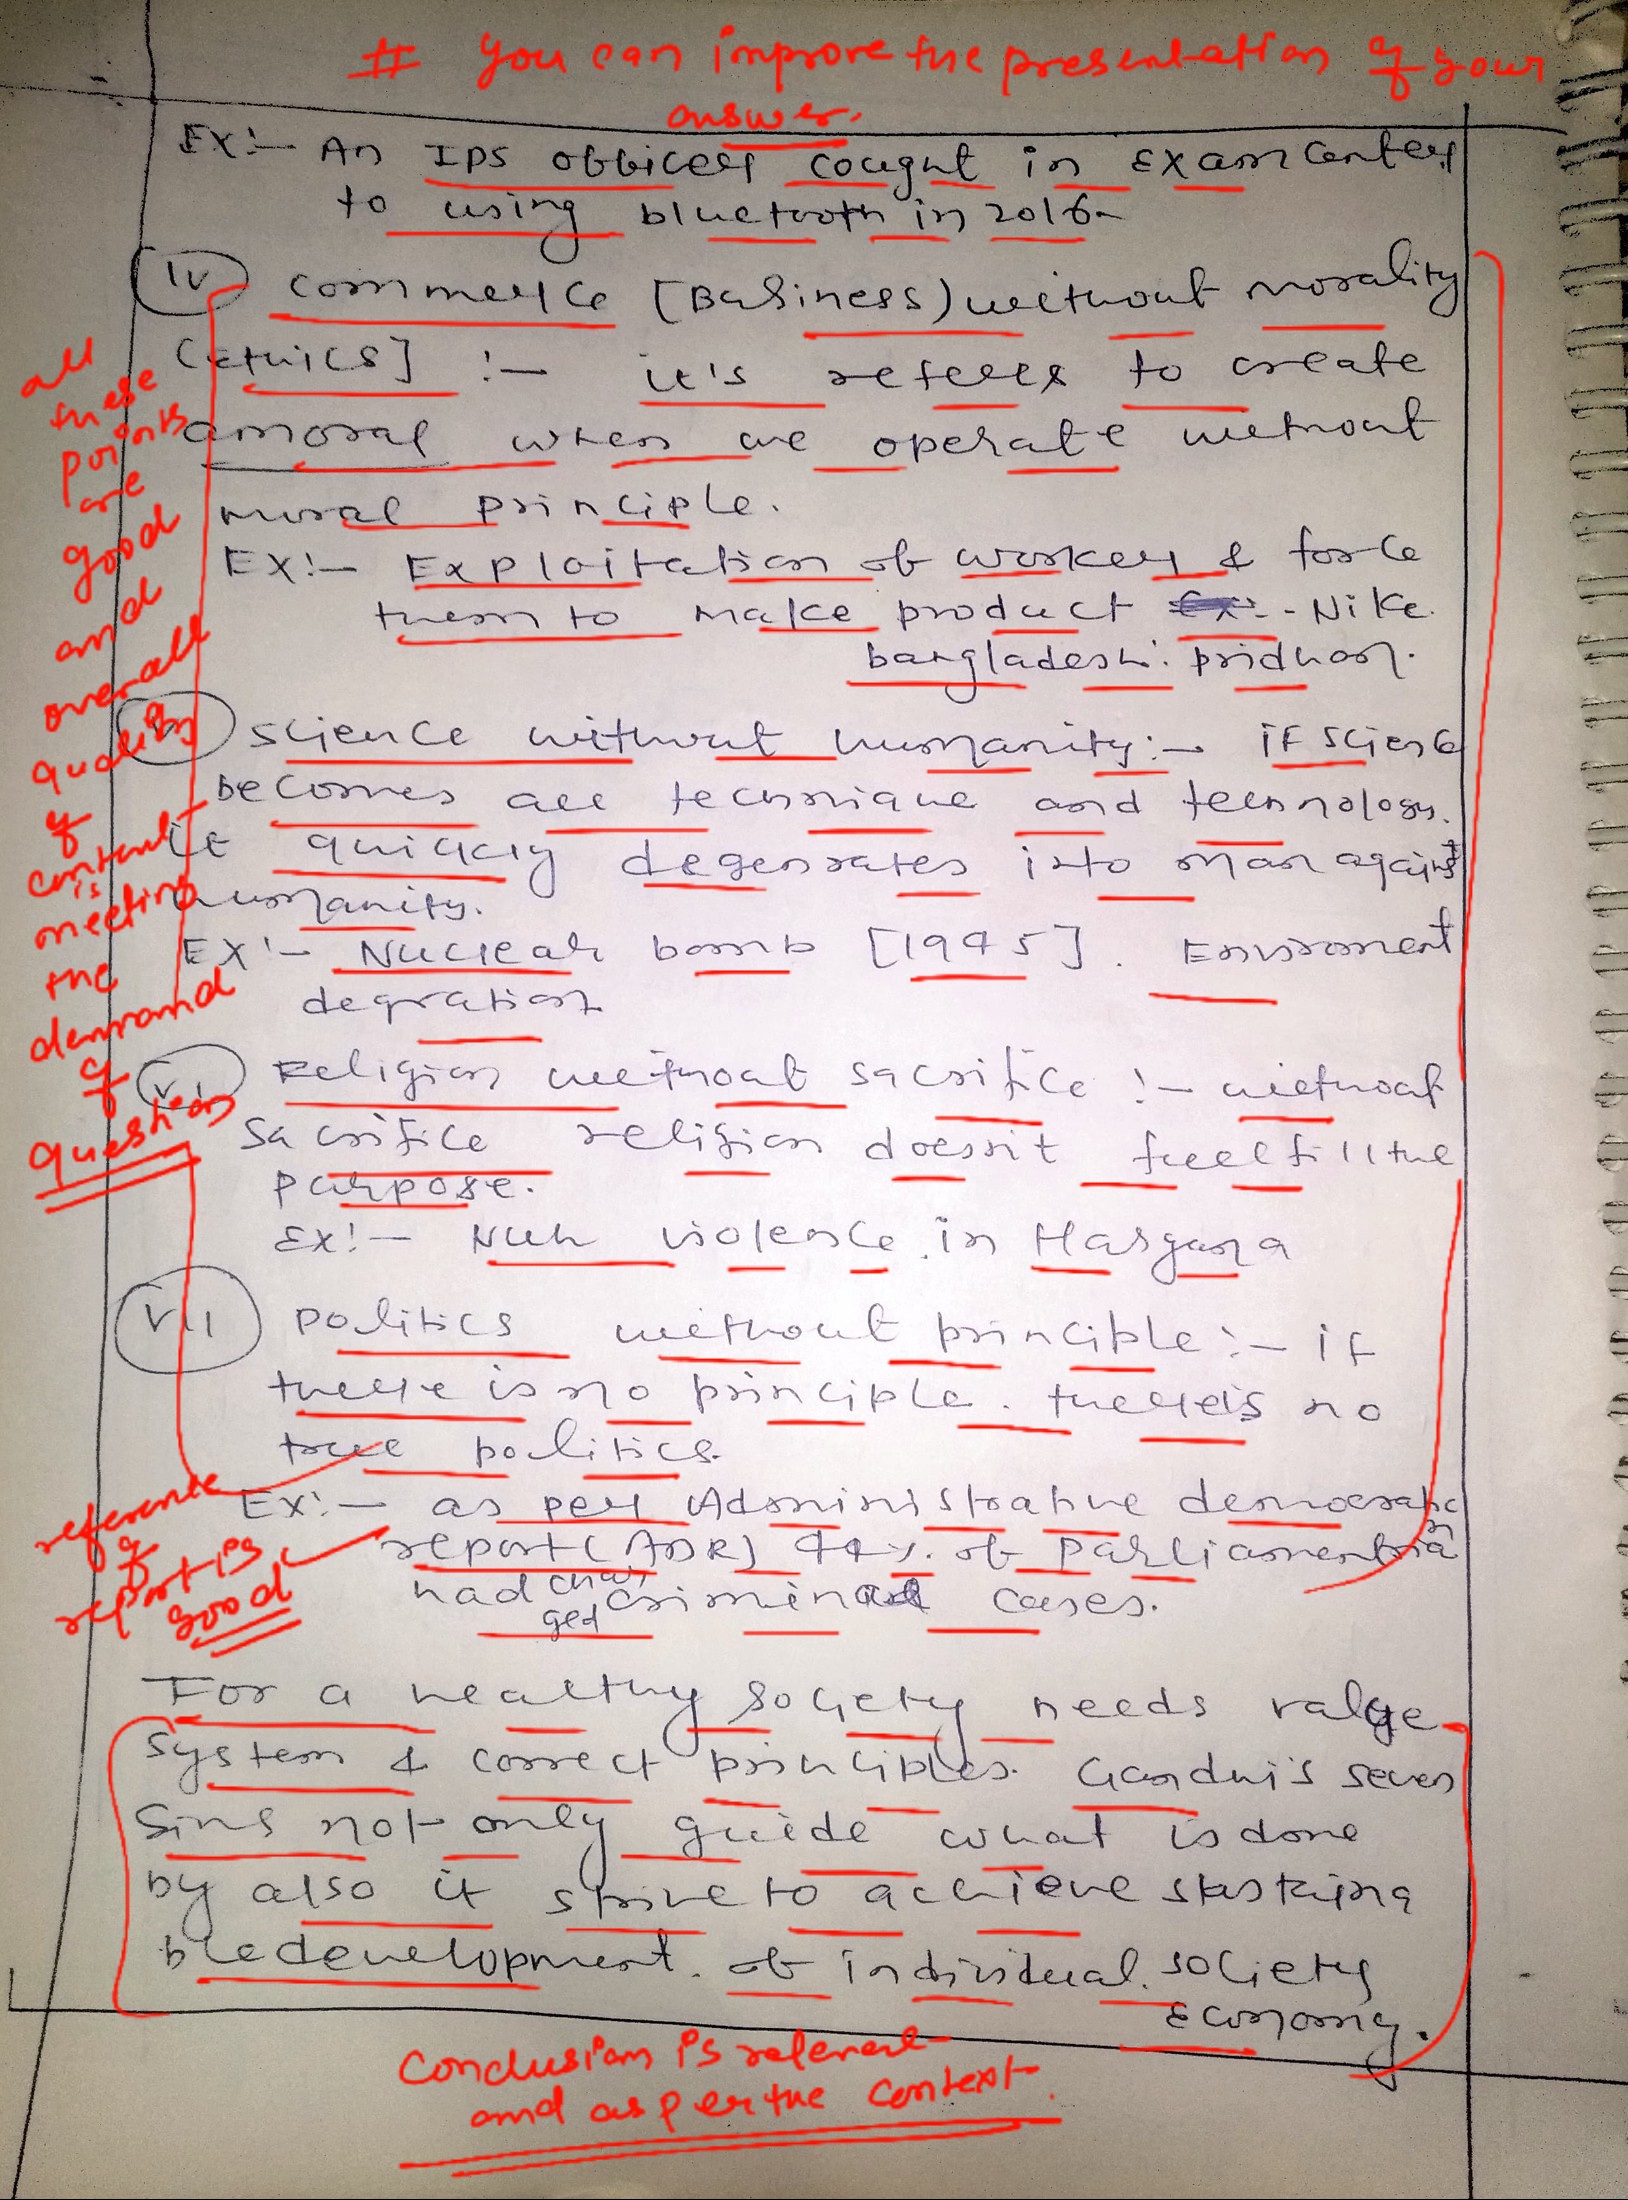 # You can improve the presentation of your
answer.
Ex:- An IPS officer cougnt in Exam Center
to using bluetooth in 2016
(iv) Commerce [Business) without morality
[ethics] :- it's referes to create
amoral when we operate without
moral principle.
EX:- Exploitation of worker & force
them to make product - Nike
bangladesh.
(v) science without humanity:- if science
becomes all technique and technology.
it quickly degenrates into man against
humanity.
EX:- Nuclear bomb [1945]. Enviroment
degration
(vi) Religion without sacrifice :- without
Sacrifice religion doesn't fullfill the
purpose.
Ex:- Nuh violence in Haryana
(vii) politics without principle:- if
there is no principle. there is no
true politics.
Ex:- as per Adminiistrative democratic
report (ADR) 44%. of Parliamentrian
had charged criminal cases.
For a healthy society needs value
system & correct principles. Gandhi's seven
Sins not only guide what is done
by also it strive to achieve sustaina
ble development. of individual. society
Economy.
all
these
points
are
good
and
overall
quality
of
content
is
meeting
the
demand
of
question
reference
of
report is
good
Conclusion is relevent
and as per the context.